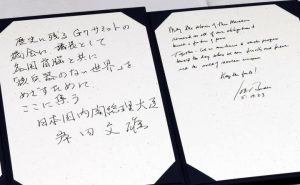 歴史に残るG7サミットの
機会に議長として
各国首脳と共に
「核兵器のない世界」を
めざすために
ここに集う
日本国内閣総理大臣
岸田文雄
May the stories of this Museum
remind us all of our obligations to
build a future of peace.
Together - let us continue to make progress
toward the day when we can finally and forever
rid the world of nuclear weapons.
Keep the faith!